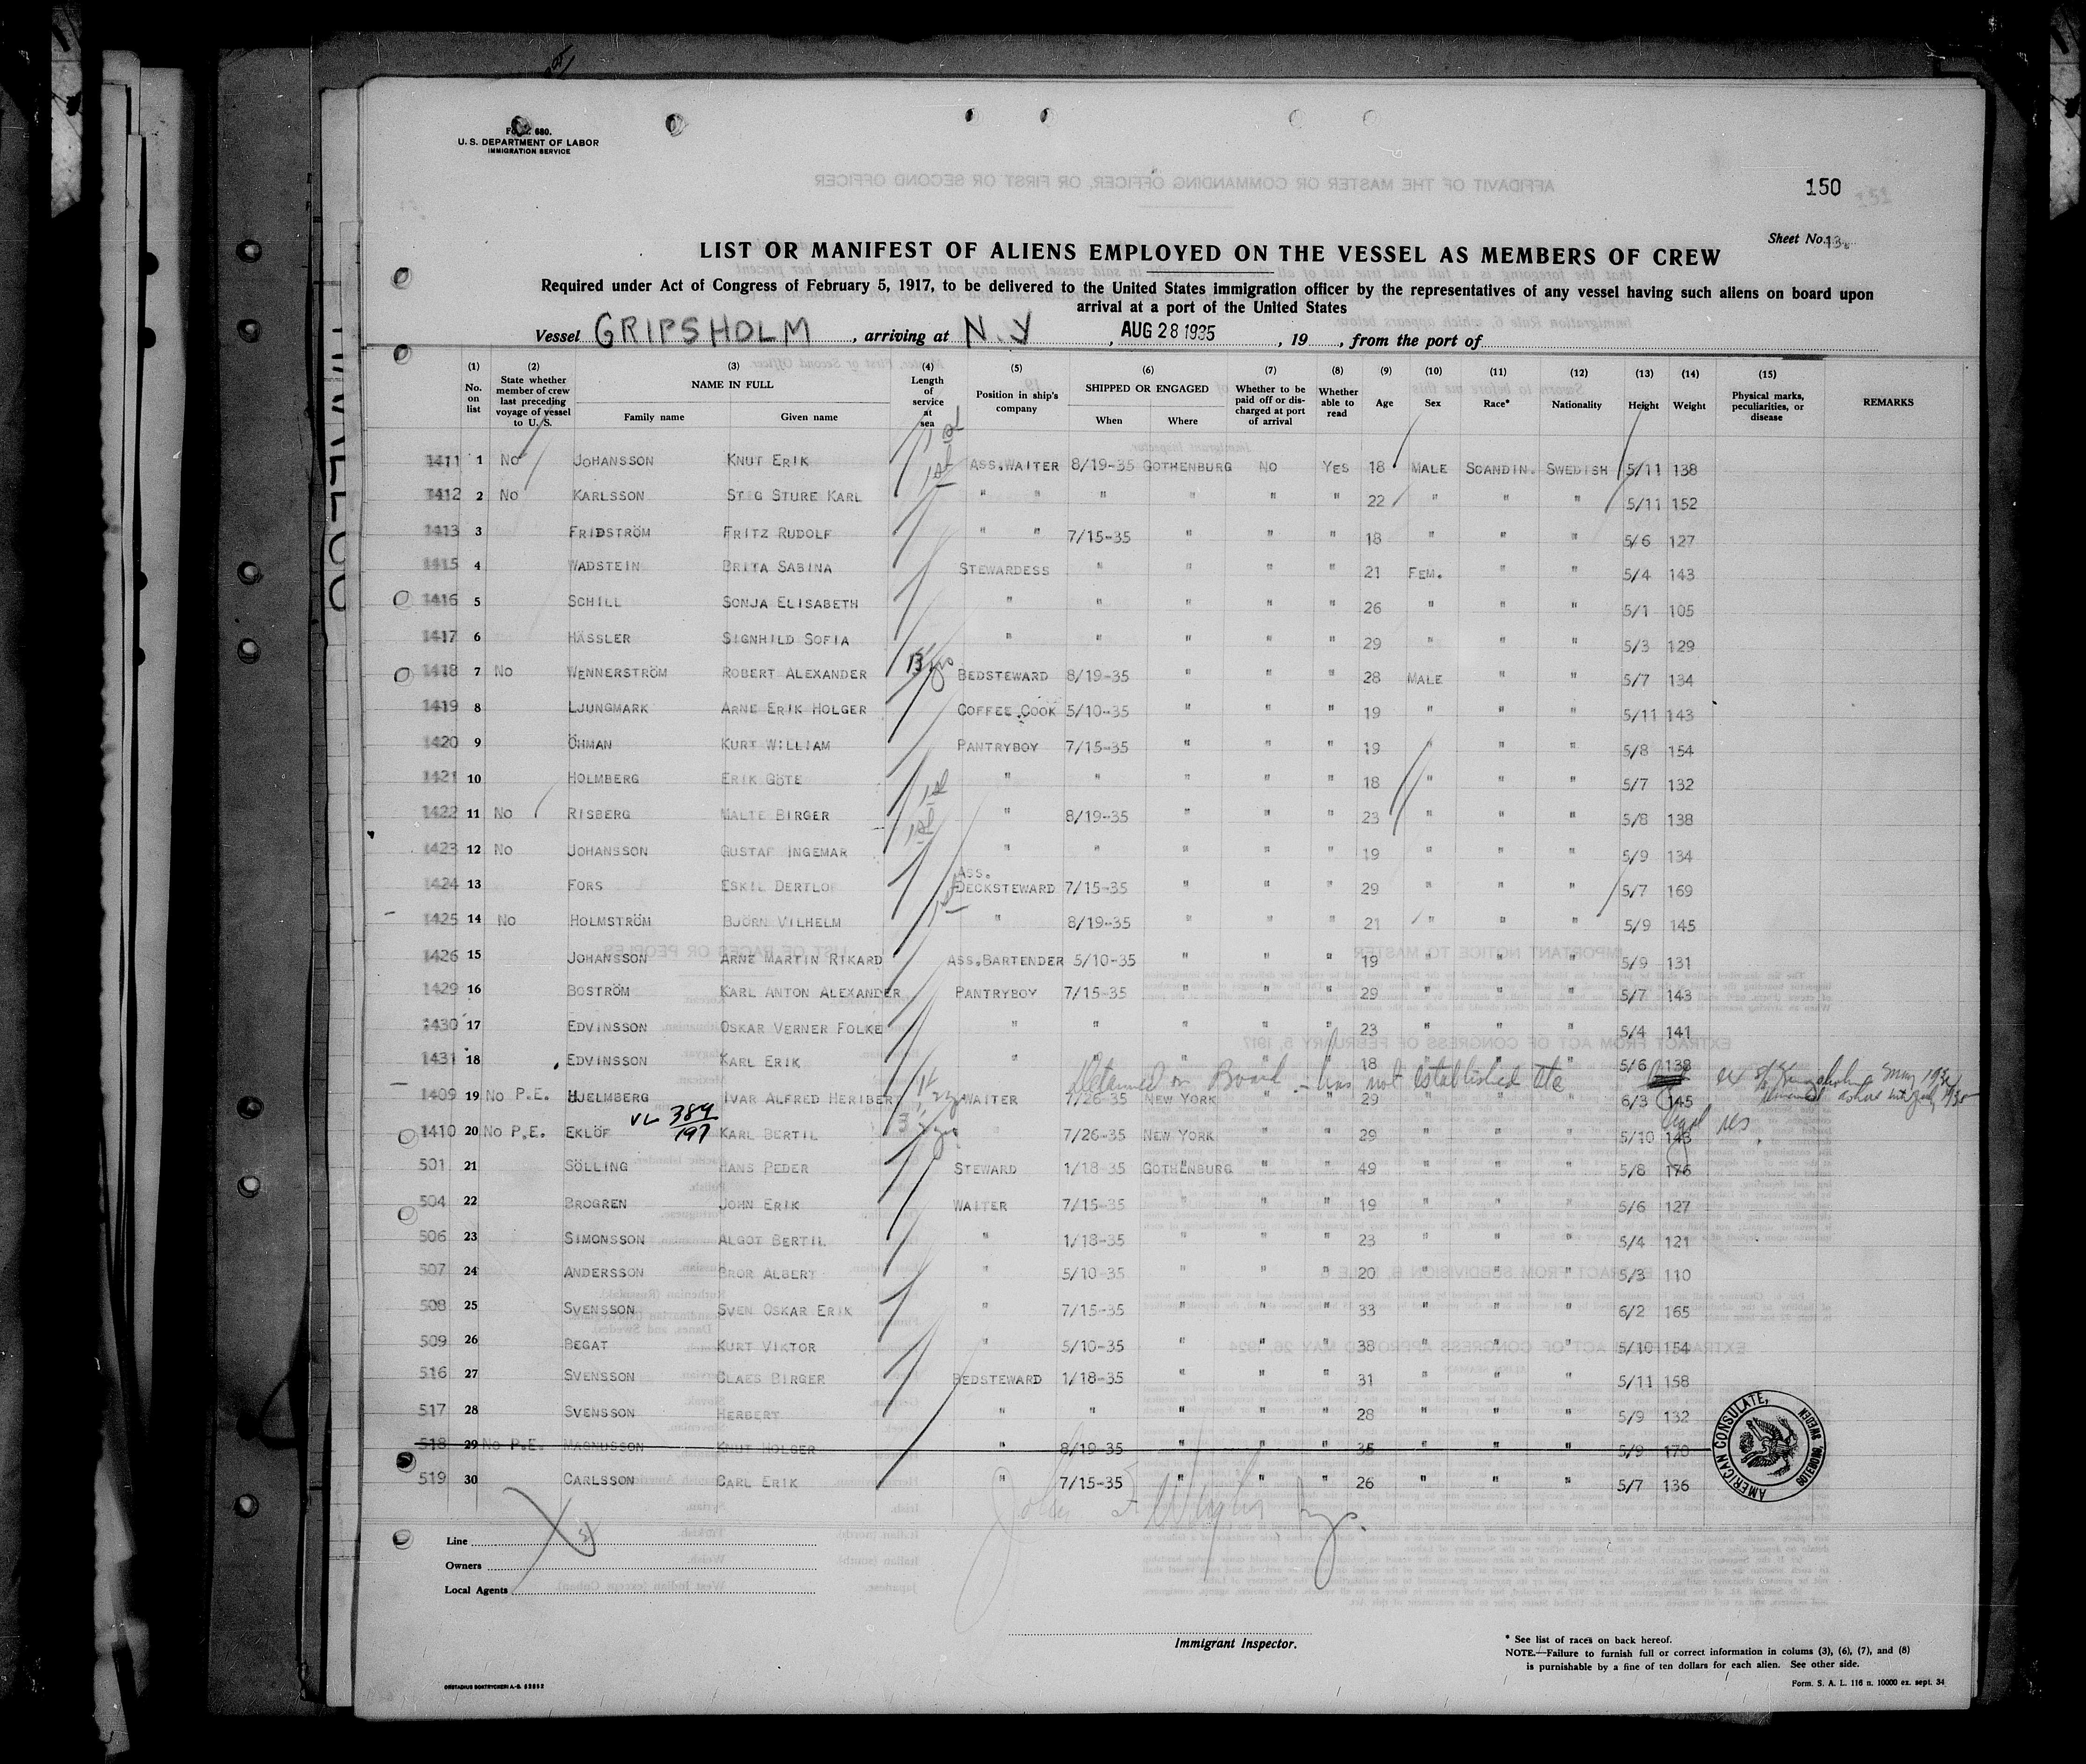 Form 680.
U. S. DEPARTMENT OF LABOR
IMMIGRATION SERVICE
150
Sheet No. 13
LIST OR MANIFEST OF ALIENS EMPLOYED ON THE VESSEL AS MEMBERS OF CREW
Required under Act of Congress of February 5, 1917, to be delivered to the United States immigration officer by the representatives of any vessel having such aliens on board upon
arrival at a port of the United States
Vessel GRIPSHOLM, arriving at N.Y, AUG 28 1935, 19, from the port of
(1) No. on list (2) State whether member of crew last preceding voyage of vessel to U. S. (3) NAME IN FULL Family name Given name (4) Length of service at sea (5) Position in ship's company (6) SHIPPED OR ENGAGED When Where (7) Whether to be paid off or discharged at port of arrival (8) Whether able to read (9) Age (10) Sex (11) Race* (12) Nationality (13) Height (14) Weight (15) Physical marks, peculiarities, or disease REMARKS
1411 1 No JOHANSSON KNUT ERIK 1st ASS.WAITER 8/19-35 GOTHENBURG NO YES 18 MALE SCANDIN. SWEDISH 5/11 138
1412 2 No KARLSSON STIG STURE KARL 1st " " " " " " 22 " " " 5/11 152
1413 3 FRIDSTRÖM FRITZ RUDOLF " " 7/15-35 " " " 18 " " " 5/6 127
1415 4 WADSTEIN BRITA SABINA STEWARDESS " " " " 21 FEM. " " 5/4 143
1416 5 SCHILL SONJA ELISABETH " " " " " 26 " " " 5/1 105
1417 6 HÄSSLER SIGNHILD SOFIA " " " " " 29 " " " 5/3 129
1418 7 No WENNERSTRÖM ROBERT ALEXANDER 13 yrs BEDSTEWARD 8/19-35 " " " 28 MALE " " 5/7 134
1419 8 LJUNGMARK ARNE ERIK HOLGER COFFEE COOK 5/10-35 " " " 19 " " " 5/11 143
1420 9 ÖHMAN KURT WILLIAM PANTRYBOY 7/15-35 " " " 19 " " " 5/8 154
1421 10 HOLMBERG ERIK GÖTE " " " " " 18 " " " 5/7 132
1422 11 No RISBERG MALTE BIRGER 1st " 8/19-35 " " " 23 " " " 5/8 138
1423 12 No JOHANSSON GUSTAF INGEMAR 1st " " " " " 19 " " " 5/9 134
1424 13 FORS ESKIL DERTLOF ASS. DECKSTEWARD 7/15-35 " " " 29 " " " 5/7 169
1425 14 No HOLMSTRÖM BJÖRN VILHELM 1st " 8/19-35 " " " 21 " " " 5/9 145
1426 15 JOHANSSON ARNE MARTIN RIKARD ASS.BARTENDER 5/10-35 " " " 19 " " " 5/9 131
1429 16 BOSTRÖM KARL ANTON ALEXANDER PANTRYBOY 7/15-35 " " " 29 " " " 5/7 143
1430 17 EDVINSSON OSKAR VERNER FOLKE " " " " " 23 " " " 5/4 141
1431 18 EDVINSSON KARL ERIK " " " " " 18 " " " 5/6 138
Detained on Board - has not established
1409 19 No P.E. HJELMBERG IVAR ALFRED HERIBERT WAITER 7/26-35 NEW YORK " " 29 " " " 6/3 145
1410 20 No P.E. EKLÖF VL 384/197 KARL BERTIL 3 yrs " 7/26-35 NEW YORK " " 29 " " " 5/10 143 legal res
501 21 SÖLLING HANS PEDER STEWARD 1/18-35 GOTHENBURG " " 49 " " " 5/8 176
504 22 BROGREN JOHN ERIK WAITER 7/15-35 " " " 19 " " " 5/6 127
506 23 SIMONSSON ALGOT BERTIL " 1/18-35 " " " 23 " " " 5/4 121
507 24 ANDERSSON BROR ALBERT " 5/10-35 " " " 20 " " " 5/3 110
508 25 SVENSSON SVEN OSKAR ERIK " 7/15-35 " " " 33 " " " 6/2 165
509 26 BEGAT KURT VIKTOR " 5/10-35 " " " 38 " " " 5/10 154
516 27 SVENSSON CLAES BIRGER BEDSTEWARD 1/18-35 " " " 31 " " " 5/11 158
517 28 SVENSSON HERBERT " " " " " 28 " " " 5/9 132
518 29 No P.E. MAGNUSSON KNUT HOLGER " 8/19-35 " " " 35 " " " 5/9 170
519 30 CARLSSON CARL ERIK " 7/15-35 " " " 26 " " " 5/7 136
AMERICAN CONSULATE, GOTHENBURG, SWEDEN
Line
Owners
Local Agents
Immigrant Inspector.
* See list of races on back hereof.
NOTE.—Failure to furnish full or correct information in colums (3), (6), (7), and (8)
is punishable by a fine of ten dollars for each alien. See other side.
Form. S. A. L. 116 n. 10000 ex. sept. 34